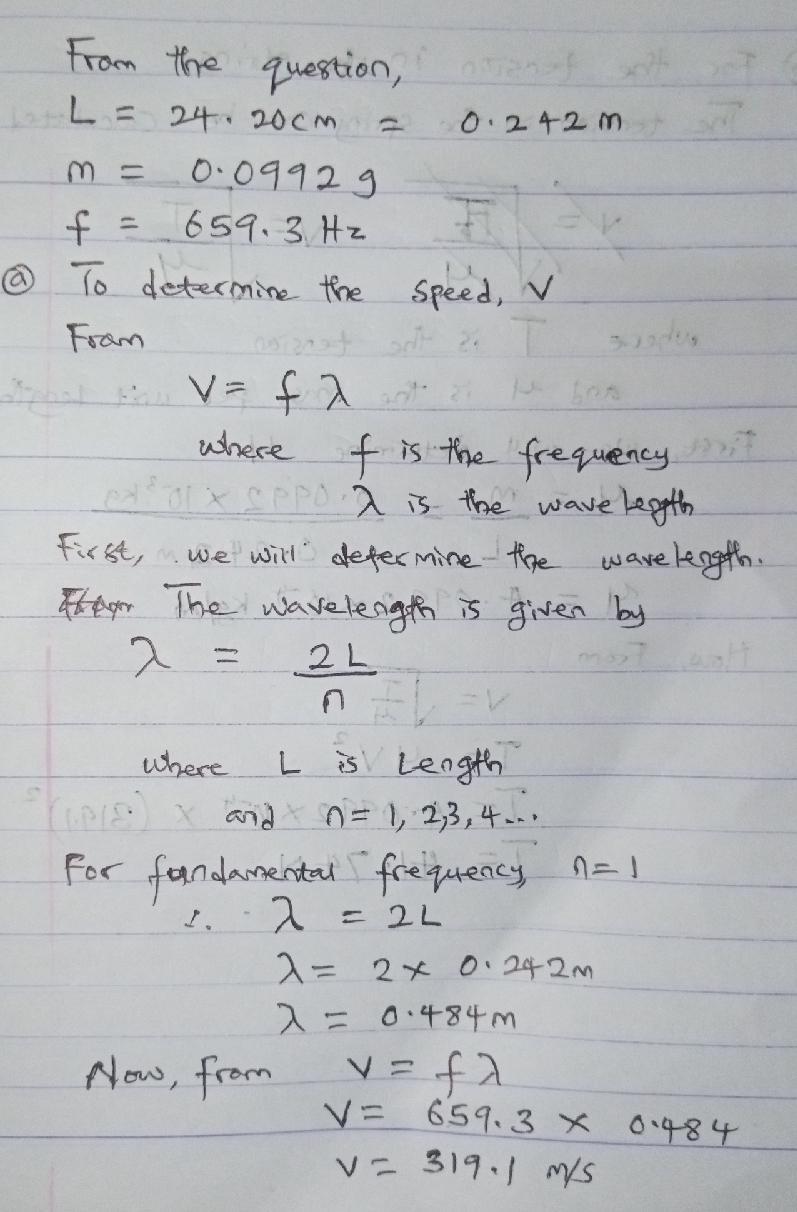 From the question,
L = 24.20cm = 0.242 m
m = 0.0992 g
f = 659.3 Hz
ⓐ To determine the speed, V
From
V = f λ
where f is the frequency
λ is the wave length
First, we will determine the wavelength.
The wavelength is given by
λ = 2L
n
where L is Length
and n = 1, 2,3, 4...
For fundamental frequency, n=1
∴ λ = 2L
λ = 2 × 0.242m
λ = 0.484m
Now, from V = fλ
V = 659.3 × 0.484
V = 319.1 m/s